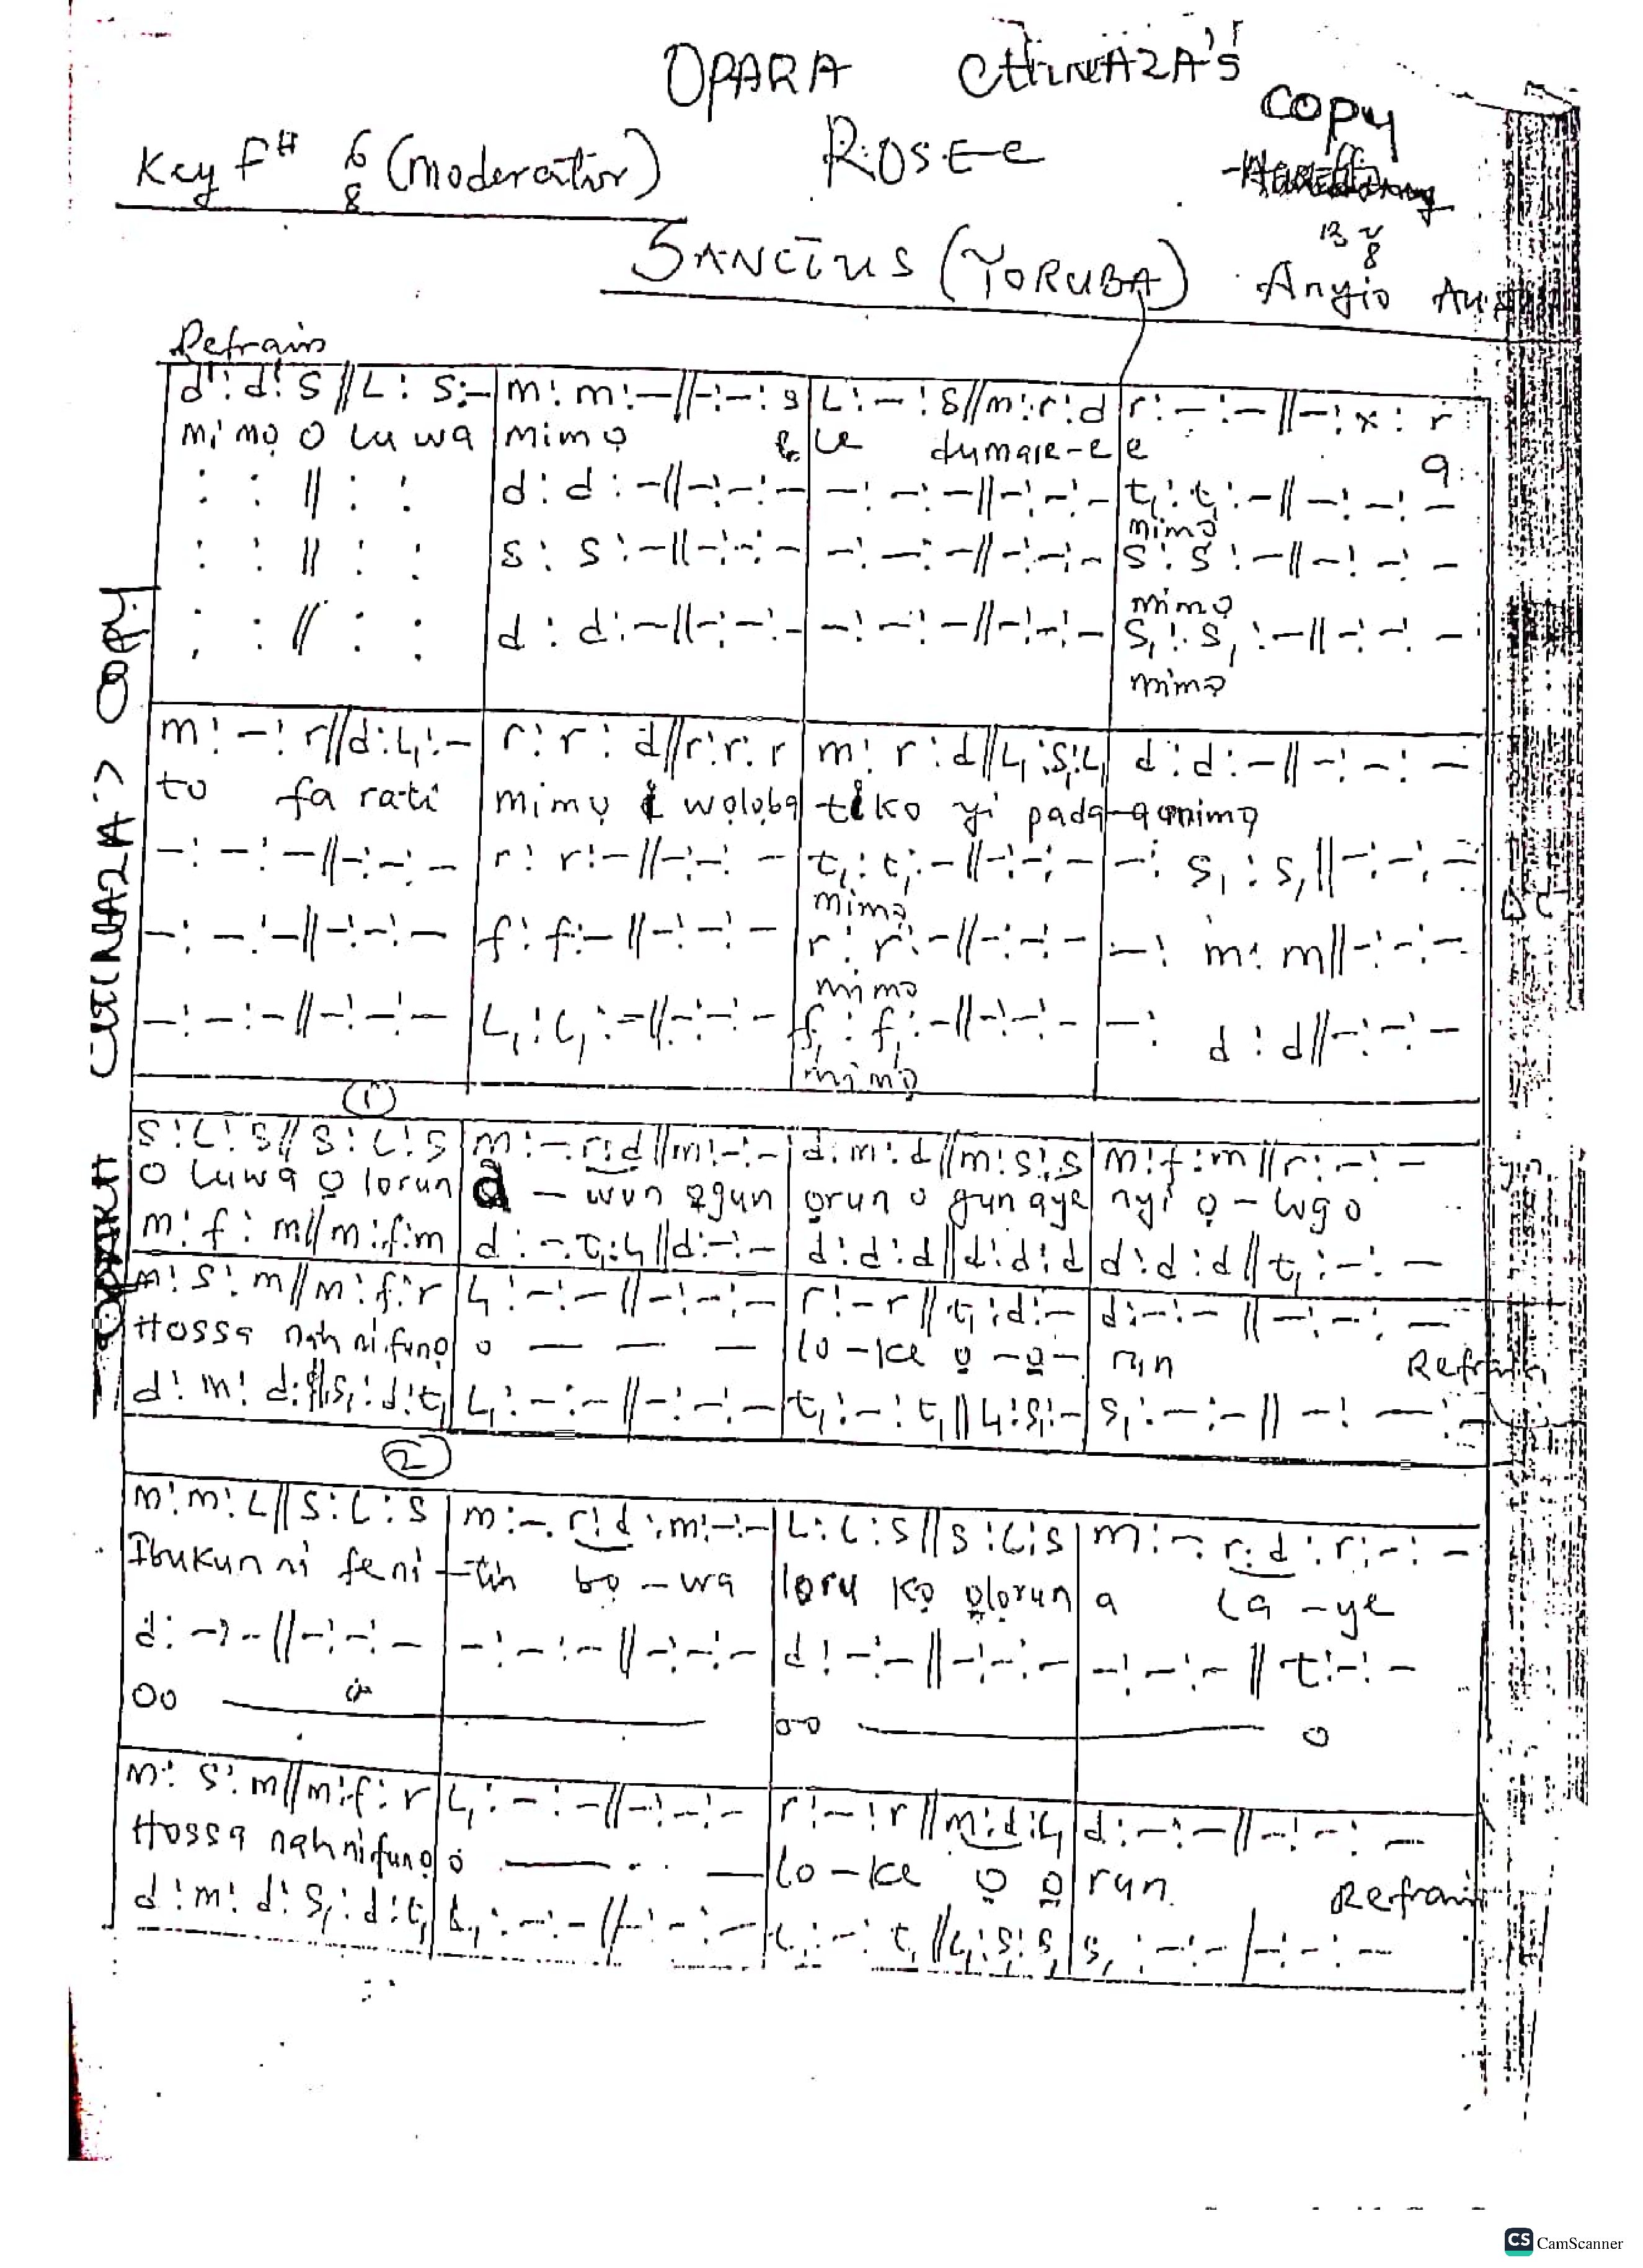 OPARA CHINAZA'S
copy
Key F# 6/8 (moderatior)
ROSEE
By
SANCTUS (YORUBA) Anyio
Refrain
d': d': s // L : s :- | m : m :- // -:-: s | L : - : s // m : r : d | r : - : - // - : x : r
mimọ O lu wa mimọ e le dumare-e e a
: : // : : | d : d : - // -:-:- | -:-:- // -:-:- | t₁ : t₁ : - // -:-:-
mimọ
: : // : : | s : s : - // -:-:- | -:-:- // -:-:- | s : s : - // -:-:-
mimọ
: : // : : | d : d : - // -:-:- | -:-:- // -:-:- | s₁ : s₁ : - // -:-:-
mimọ
m : - : r // d : L₁ : - | r : r : d // r : r : r | m : r : d // L₁ : s₁ : L₁ | d : d : - // -:-:-
to fa rati mimọ i wọlọba tiko yi pada-a mimọ
-:-:- // -:-:- | r : r : - // -:-:- | t₁ : t₁ : - // -:-:- | - : s₁ : s₁ // -:-:-
mimọ
-:-:- // -:-:- | f : f : - // -:-:- | r : r : - // -:-:- | - : m : m // -:-:-
DC
mimọ
-:-:- // -:-:- | L₁ : L₁ : - // -:-:- | f₁ : f₁ : - // -:-:- | - : d : d // -:-:-
mimọ
①
s : L : s // s : L : s | m : - . r : d // m : - : - | d : m : d // m : s : s | m : f : m // r : - : -
O luwa ọ lorun a - wun ọgun ọrun o gun aye nyi ọ - lugo
m : f : m // m : f : m | d : - . t₁ : L₁ // d : - : - | d : d : d // d : d : d | d : d : d // t₁ : - : -
m : s : m // m : f : r | L₁ : - : - // -:-:- | r : - r // t₁ : d : - | d : - : - // -:-:-
Hossa nah ni funo o — — — lo - ke ọ - ọ - run Refrain
d : m : d : // s₁ : d : t₁ | L₁ : - : - // -:-:- | t₁ : - : t₁ // L₁ : s₁ : - | s₁ : - : - // - : - : -
②
m : m : L // s : L : s | m : - . r : d : m : - : - | L : L : s // s : L : s | m : - . r : d : r : - : -
Ibukun ni feni - tin bọ - wa loru kọ ọlọrun a la - ye
d : - : - // -:-:- | -:-:- // -:-:- | d : - : - // -:-:- | -:-:- // t : - : -
oo o-o o
m : s : m // m : f : r | L₁ : - : - // -:-:- | r : - : r // m : d : L₁ | d : - : - // -:-:-
Hossa nah ni funo o — — lo - ke ọ ọ run. Refrain
d : m : d : s₁ : d : t₁ | L₁ : - : - // -:-:- | L₁ : - : t₁ // L₁ : s₁ : s₁ | s₁ : - : - / -:-:-
OPARAH CHINAZA'S copy
CS CamScanner